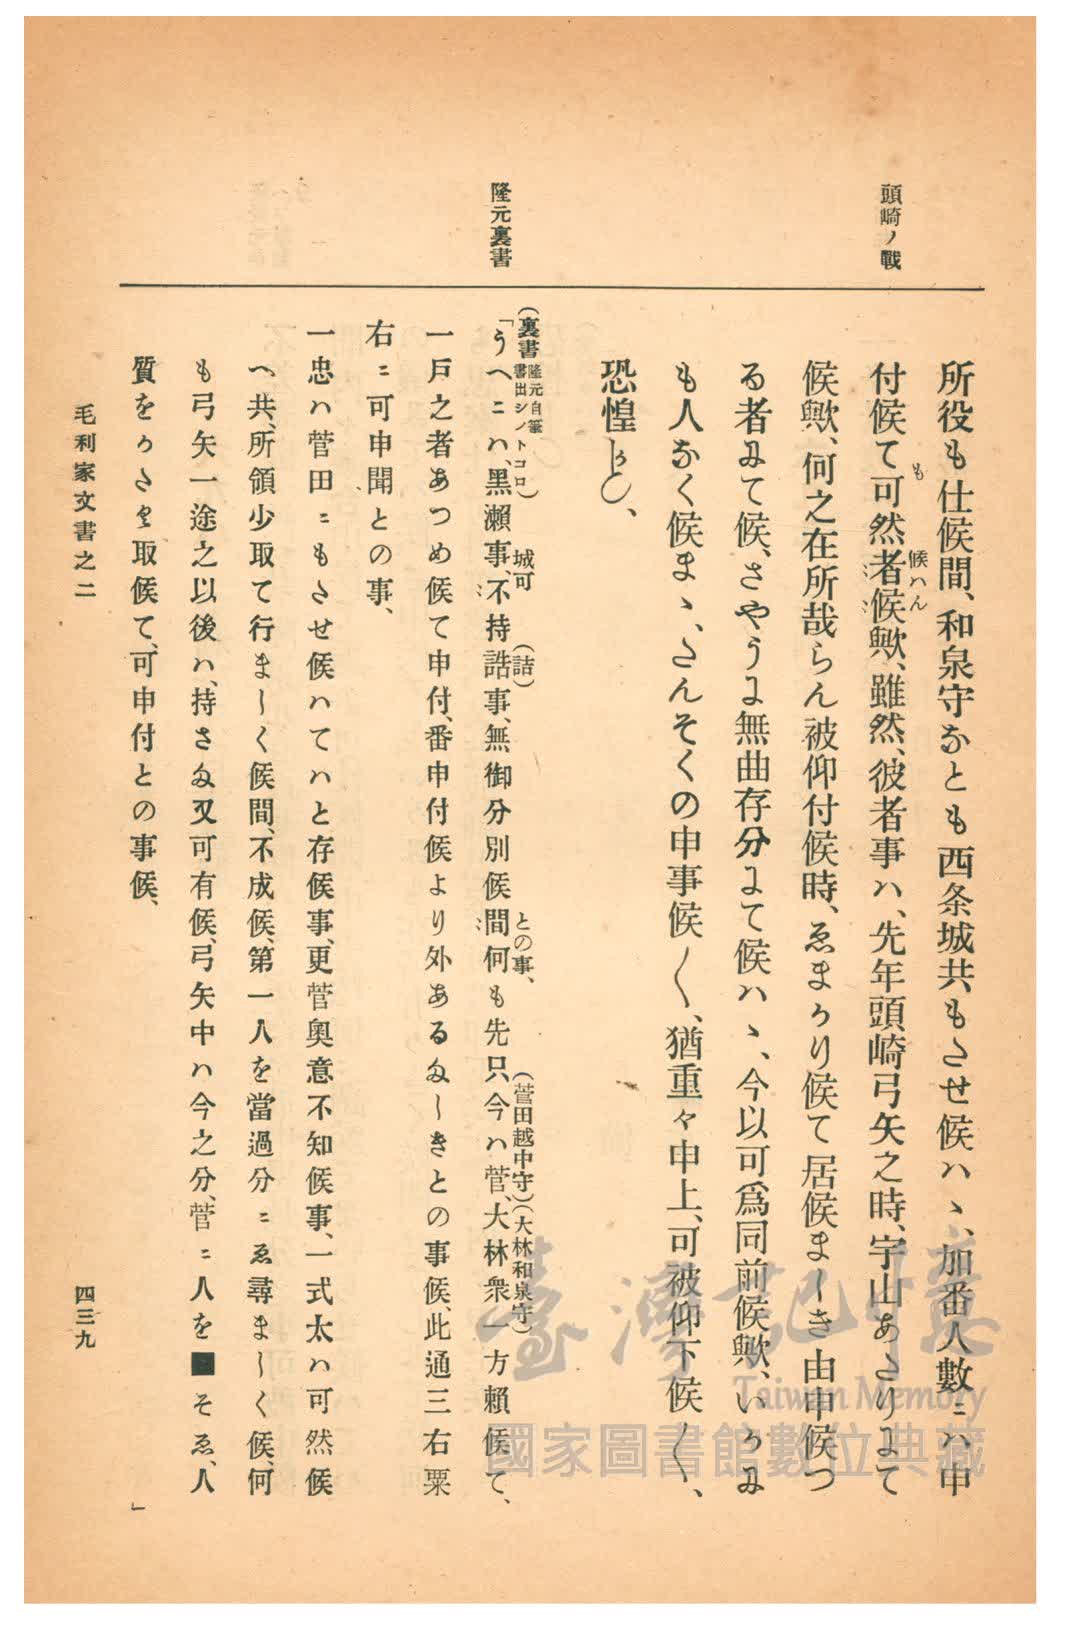 頭崎ノ戰
隆元裏書
所役も仕候間、和泉守なとも西条城共もたせ候ハヽ、加番人數ニハ申
付候て可然者候歟、雖然、彼者事ハ、先年頭崎弓矢之時、宇山あたりにて
も
候ハん
候歟、何之在所哉らん被仰付候時、ゑまかり候て居候ましき由申候つ
る者にて候、さやうに無曲存分にて候ハヽ、今以可爲同前候歟、いかに
も人なく候まヽ、たんそくの申事候〱、猶重々申上、可被仰下候〱、
恐惶かしく、
(裏書隆元自筆書出シノトコロ)
「うへニハ、黒瀬事、不持誥事、無御分別候間何も先只今ハ菅、大林衆一方賴候て、
城可
(詰)
との事、
(菅田越中守)(大林和泉守)
一戸之者あつめ候て申付、番申付候より外あるましきとの事候、此通三右粟
右ニ可申聞との事、
一忠ハ菅田ニもたせ候ハてハと存候事、更菅奥意不知候事、一式太ハ可然候
へ共、所領少取て行ましく候間、不成候、第一人を當過分ニゑ尋ましく候、何
も弓矢一途之以後ハ、持さま又可有候、弓矢中ハ今之分、菅ニ人を■そゑ、人
質をかたく取候て、可申付との事候、
」
毛利家文書之二
四三九
臺灣記憶
Taiwan Memory
國家圖書館數位典藏